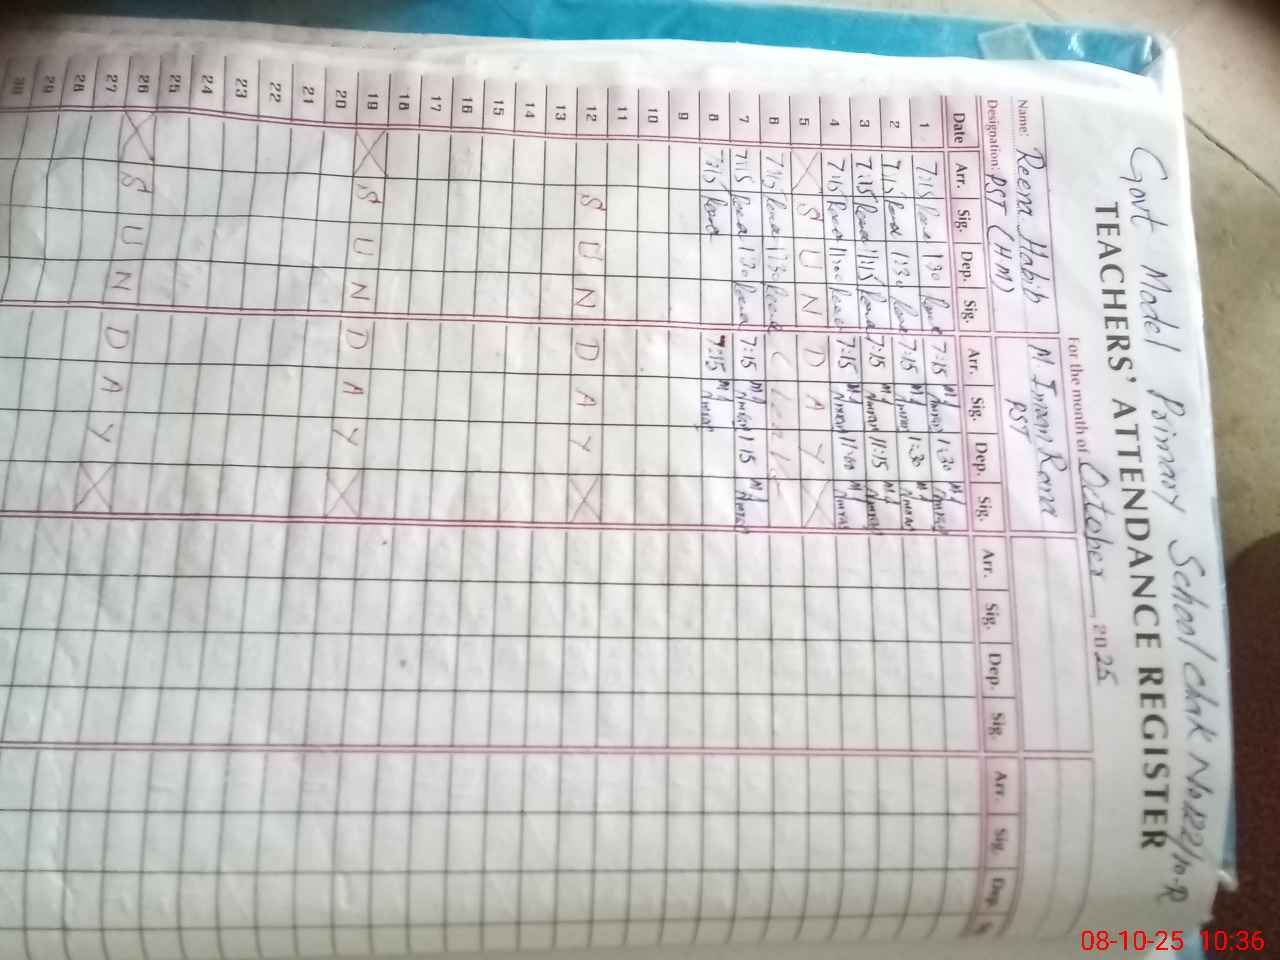 Govt Model Primary School Chak No 122/10-R
TEACHERS' ATTENDANCE REGISTER
For the month of October 2025
Name: Reena Habib M. Imran Rana
Designation: PST (HM) PST
Date Arr. Sig. Dep. Sig. Arr. Sig. Dep. Sig. Arr. Sig. Dep. Sig. Arr. Sig. Dep.
1 7:15 1:30 7:15 1:30
2 7:15 1:30 7:15 1:30
3 7:15 11:15 7:15 11:15
4 7:15 11:00 7:15 11:00
5 SUNDAY
6 7:15 1:30
7 7:15 1:30 7:15 1:15
8 7:15 7:15
9
10
11
12 SUNDAY
13
14
15
16
17
18
19 SUNDAY
20
21
22
23
24
25
26 SUNDAY
27
28
29
30
08-10-25 10:36